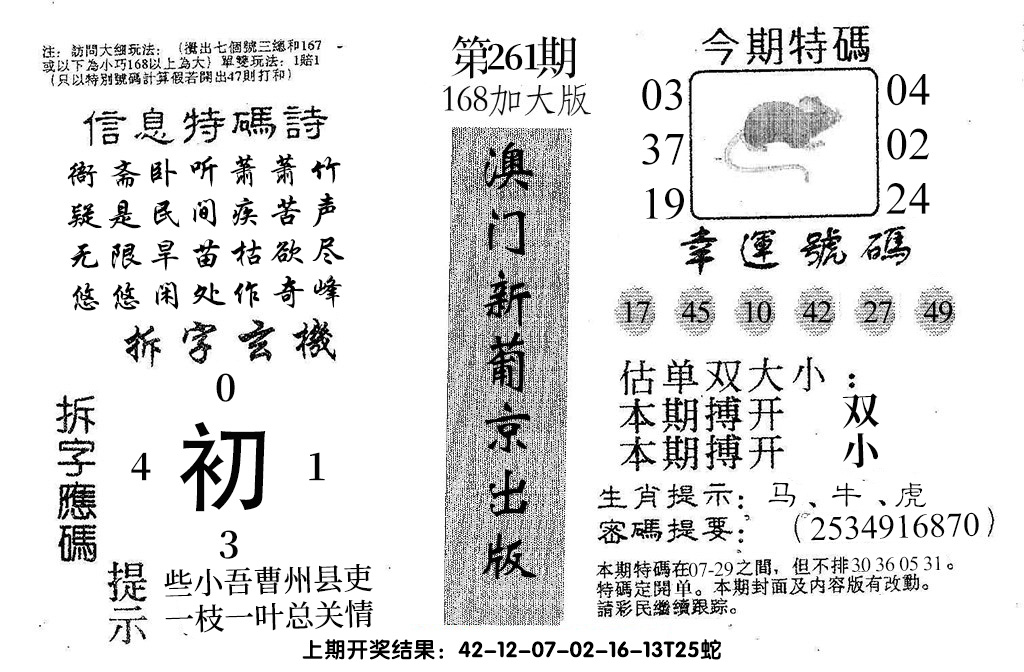 注：訪問大細玩法：（攪出七個號三總和167
或以下為小巧168以上為大）單雙玩法：1賠1
（只以特別號碼計算假若開出47則打和）
信息特碼詩
衙斋卧听萧萧竹
疑是民间疾苦声
无限旱苗枯欲尽
悠悠闲处作奇峰
拆字玄機
拆字應碼
0
4 初 1
3
提示
些小吾曹州县吏
一枝一叶总关情
第261期
168加大版
澳门新葡京出版
今期特碼
03 04
37 02
19 24
幸運號碼
17 45 10 42 27 49
估单双大小：
本期搏开 双
本期搏开 小
生肖提示：马、牛、虎
密碼提要：（2534916870）
本期特碼在07-29之間，但不排30 36 05 31。
特碼定開单。本期封面及内容版有改動。
請彩民繼續跟踪。
上期开奖结果：42-12-07-02-16-13T25蛇